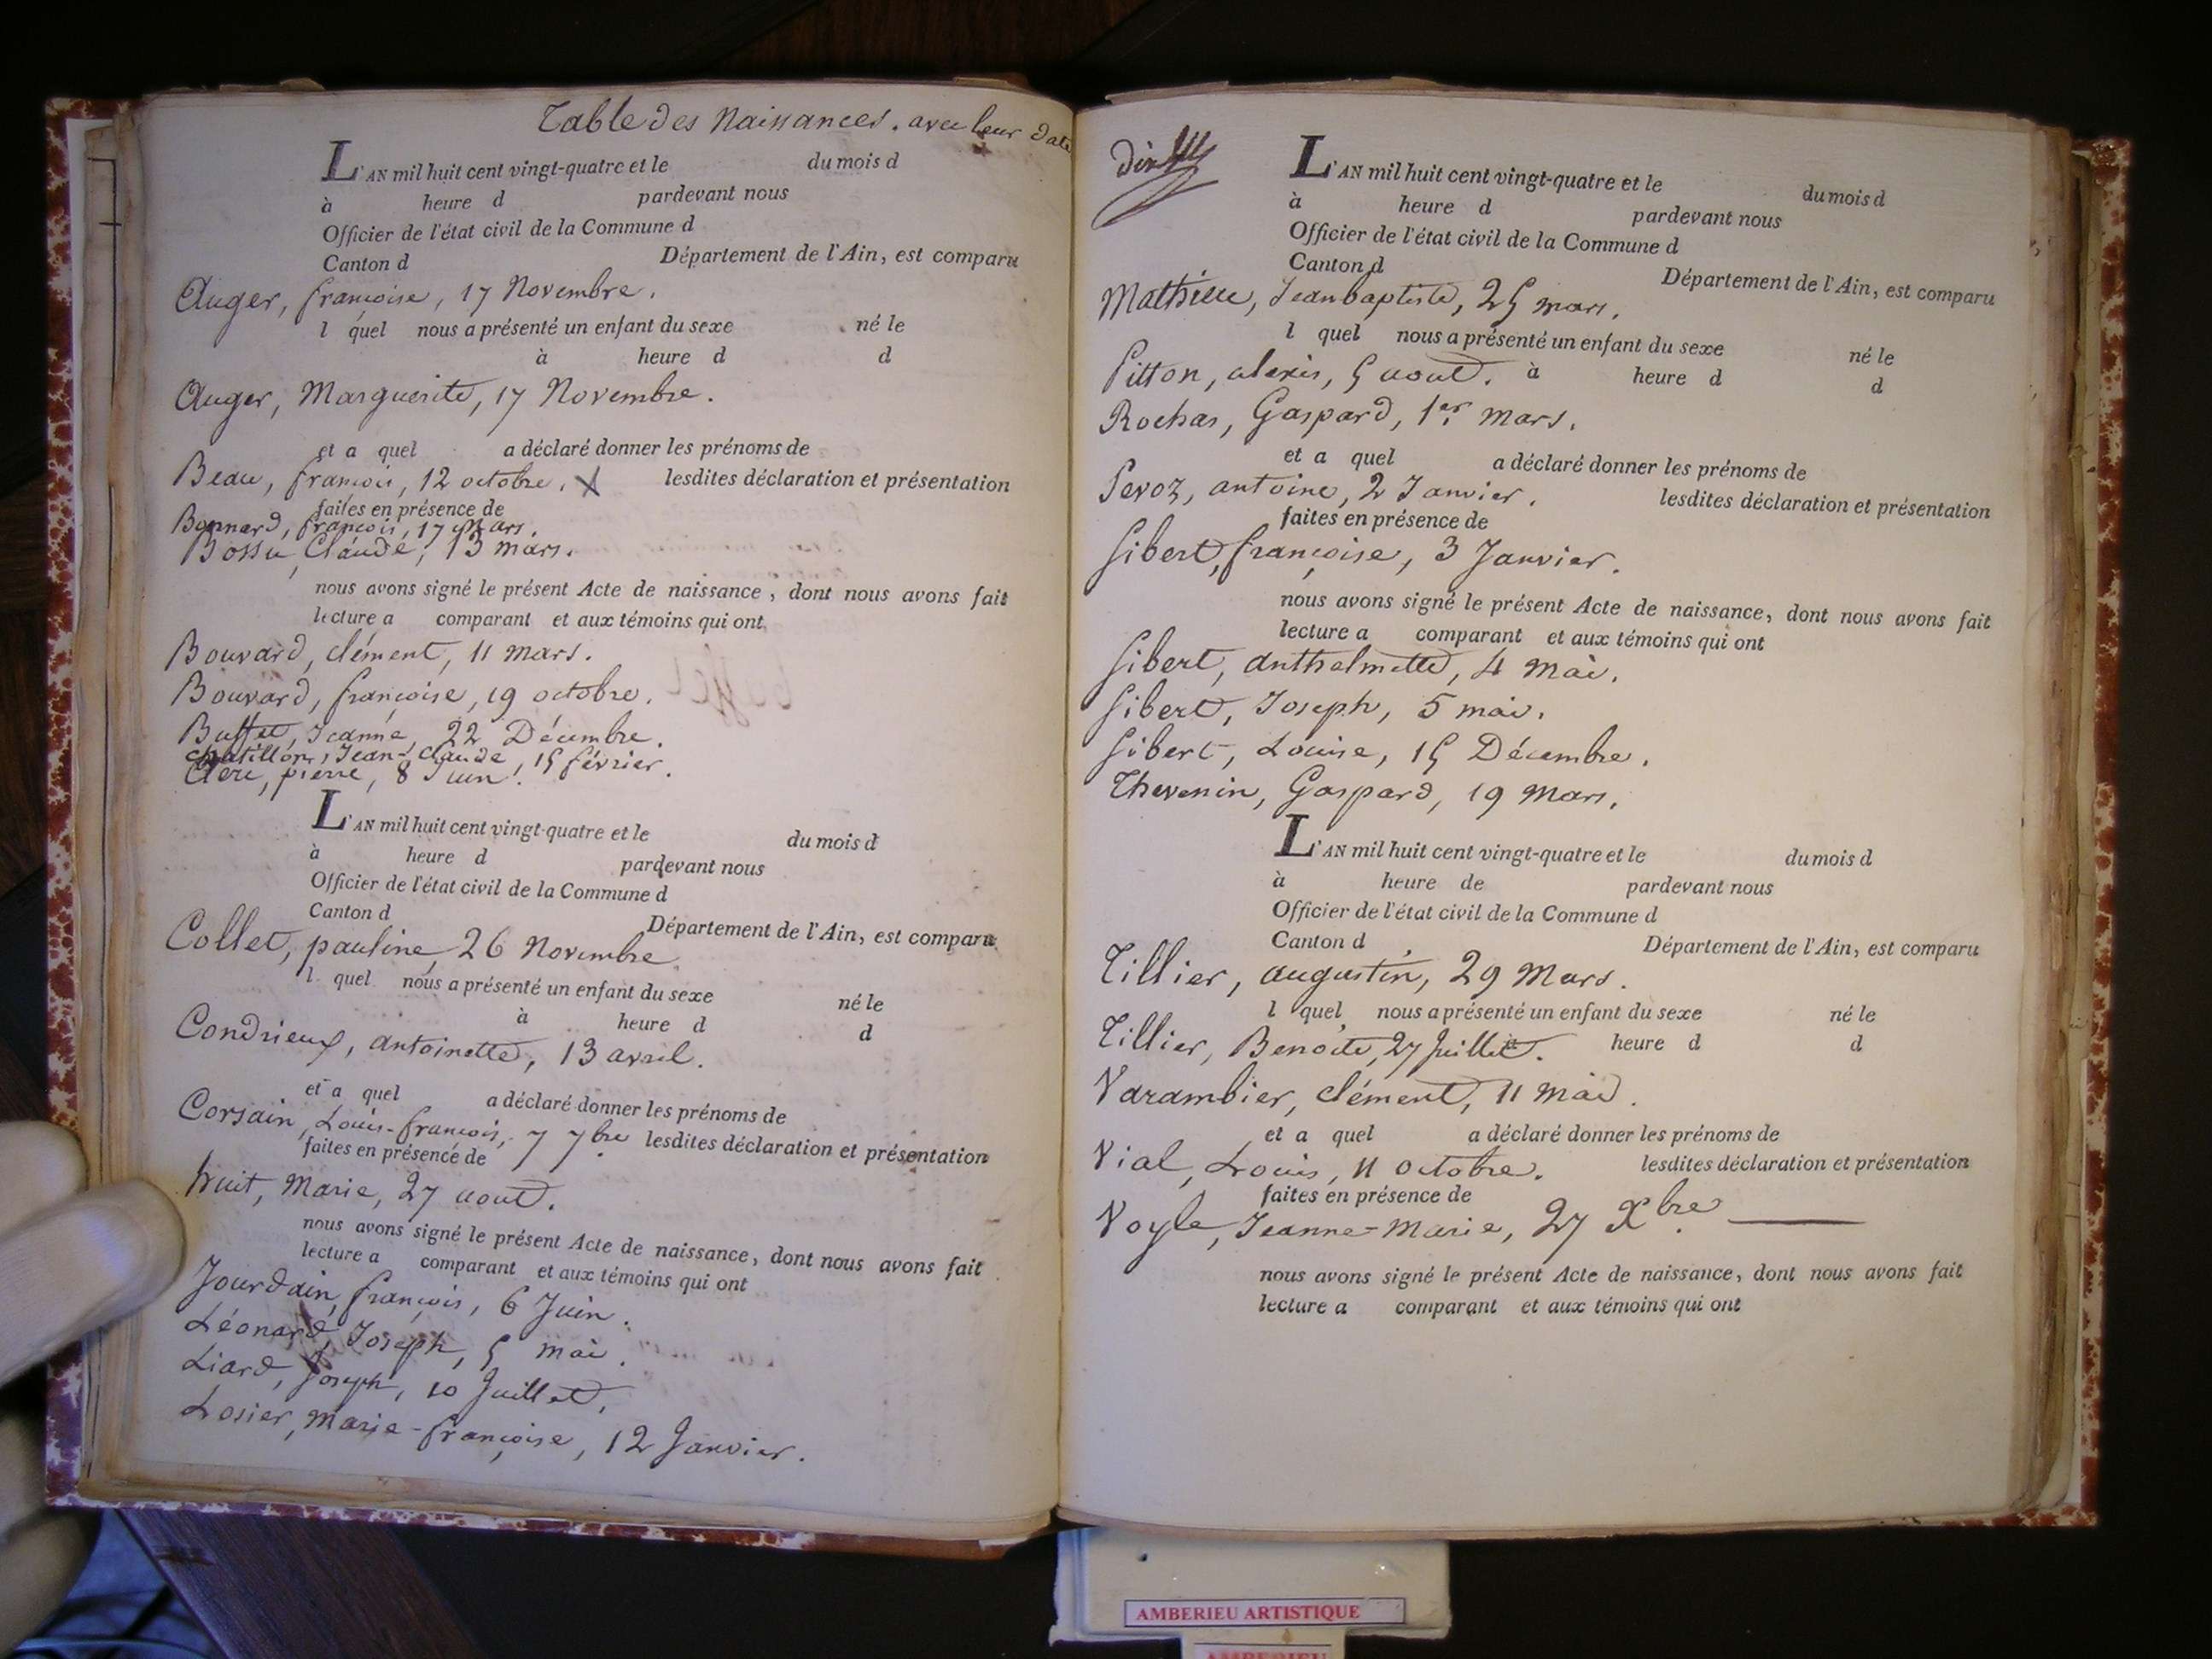 Table des Naissances. avec leur date
L'AN mil huit cent vingt-quatre et le du mois d
à heure d pardevant nous
Officier de l'état civil de la Commune d
Canton d Département de l'Ain, est comparu
Auger, françoise, 17 Novembre.
l quel nous a présenté un enfant du sexe né le
à heure d d
Auger, Marguerite, 17 Novembre.
et a quel a déclaré donner les prénoms de
Beau, françois, 12 octobre. X lesdites déclaration et présentation
faites en présence de
Bonnard, françois, 17 mars.
Bossu, Claude, 13 mars.
nous avons signé le présent Acte de naissance, dont nous avons fait
lecture a comparant et aux témoins qui ont
Bouvard, clément, 11 mars.
Bouvard, françoise, 19 octobre.
Buffet, Jeanne, 22 Décembre.
Chatillon, Jean-Claude, 15 février.
Clerc, pierre, 8 Juin.
L'AN mil huit cent vingt-quatre et le du mois d
à heure d pardevant nous
Officier de l'état civil de la Commune d
Canton d Département de l'Ain, est comparu
Collet, pauline, 26 Novembre
l quel nous a présenté un enfant du sexe né le
à heure d d
Condrieux, antoinette, 13 avril.
et a quel a déclaré donner les prénoms de
Corsain, Louis-françois, 7 7bre lesdites déclaration et présentation
faites en présence de
huit, Marie, 27 aout.
nous avons signé le présent Acte de naissance, dont nous avons fait
lecture a comparant et aux témoins qui ont
Jourdain, françois, 6 Juin.
Léonard, Joseph, 5 mai.
Liard, Joseph, 10 Juillet.
Losier, Marie-françoise, 12 Janvier.
L'AN mil huit cent vingt-quatre et le du mois d
à heure d pardevant nous
Officier de l'état civil de la Commune d
Canton d Département de l'Ain, est comparu
Mathieu, Jeanbaptiste, 25 mars.
l quel nous a présenté un enfant du sexe né le
Pitton, alexis, 5 aout. à heure d d
Rochas, Gaspard, 1er mars.
et a quel a déclaré donner les prénoms de
Sevoz, antoine, 2 Janvier. lesdites déclaration et présentation
faites en présence de
Sibert, françoise, 3 Janvier.
nous avons signé le présent Acte de naissance, dont nous avons fait
lecture a comparant et aux témoins qui ont
Sibert, anthelmette, 4 mai.
Sibert, Joseph, 5 mai.
Sibert, Louise, 15 Décembre.
Thevenin, Gaspard, 19 Mars.
L'AN mil huit cent vingt-quatre et le du mois d
à heure de pardevant nous
Officier de l'état civil de la Commune d
Canton d Département de l'Ain, est comparu
Tillier, augustin, 29 Mars.
l quel nous a présenté un enfant du sexe né le
Tillier, Benoite, 27 Juillet. à heure d d
Varambier, clément, 11 mai.
et a quel a déclaré donner les prénoms de
Vial, Louis, 11 octobre. lesdites déclaration et présentation
faites en présence de
Voyle, Jeanne-Marie, 27 Xbre
nous avons signé le présent Acte de naissance, dont nous avons fait
lecture a comparant et aux témoins qui ont
AMBERIEU ARTISTIQUE
AMBERIEU